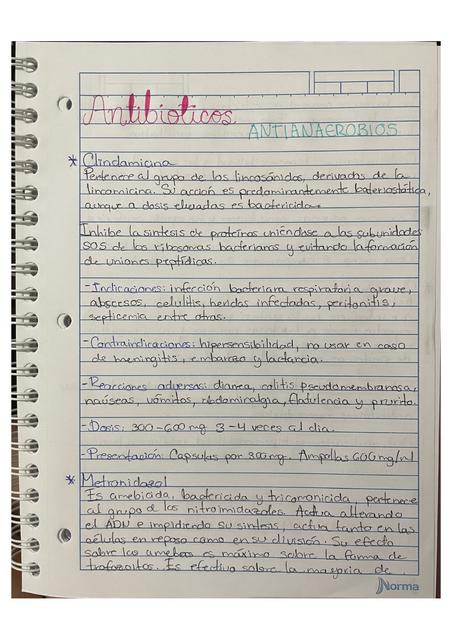 Antibioticos
ANTIANAEROBIOS
* Clindamicina
Pertenece al grupo de los lincosánidos, derivados de la
lincomicina. Su acción es predominantemente bateriostática,
aunque a dosis elevadas es bactericida.
Inhibe la sintesis de proteínas uniéndose a las subunidades
50S de los ribosomas bacterianos y evitando la formación
de uniones peptídicas.
- Indicaciones: infección bacteriana respiratoria grave,
abscesos, celulitis, heridas infectadas, peritonitis,
septicemia entre otras.
- Contraindicaciones: hipersensibilidad, no usar en caso
de meningitis, embarazo y lactancia.
- Reacciones adversas: diarrea, colitis pseudomembranosa,
naúseas, vómitos, abdominalgia, flatulencia y prurito.
- Dosis: 300-600 mg 3-4 veces al día.
- Presentación: Capsulas por 300mg. Ampollas 600 mg/ml
* Metronidazol
Es amebicida, bactericida y tricomonicida, pertenece
al grupo de los nitroimidazoles. Actúa alterando
el ADN e impidiendo su síntesis, activa tanto en las
células en reposo como en su división. Su efecto
sobre las amebas es máximo sobre la forma de
trofozoitos. Es efectivo sobre la mayoria de
Norma